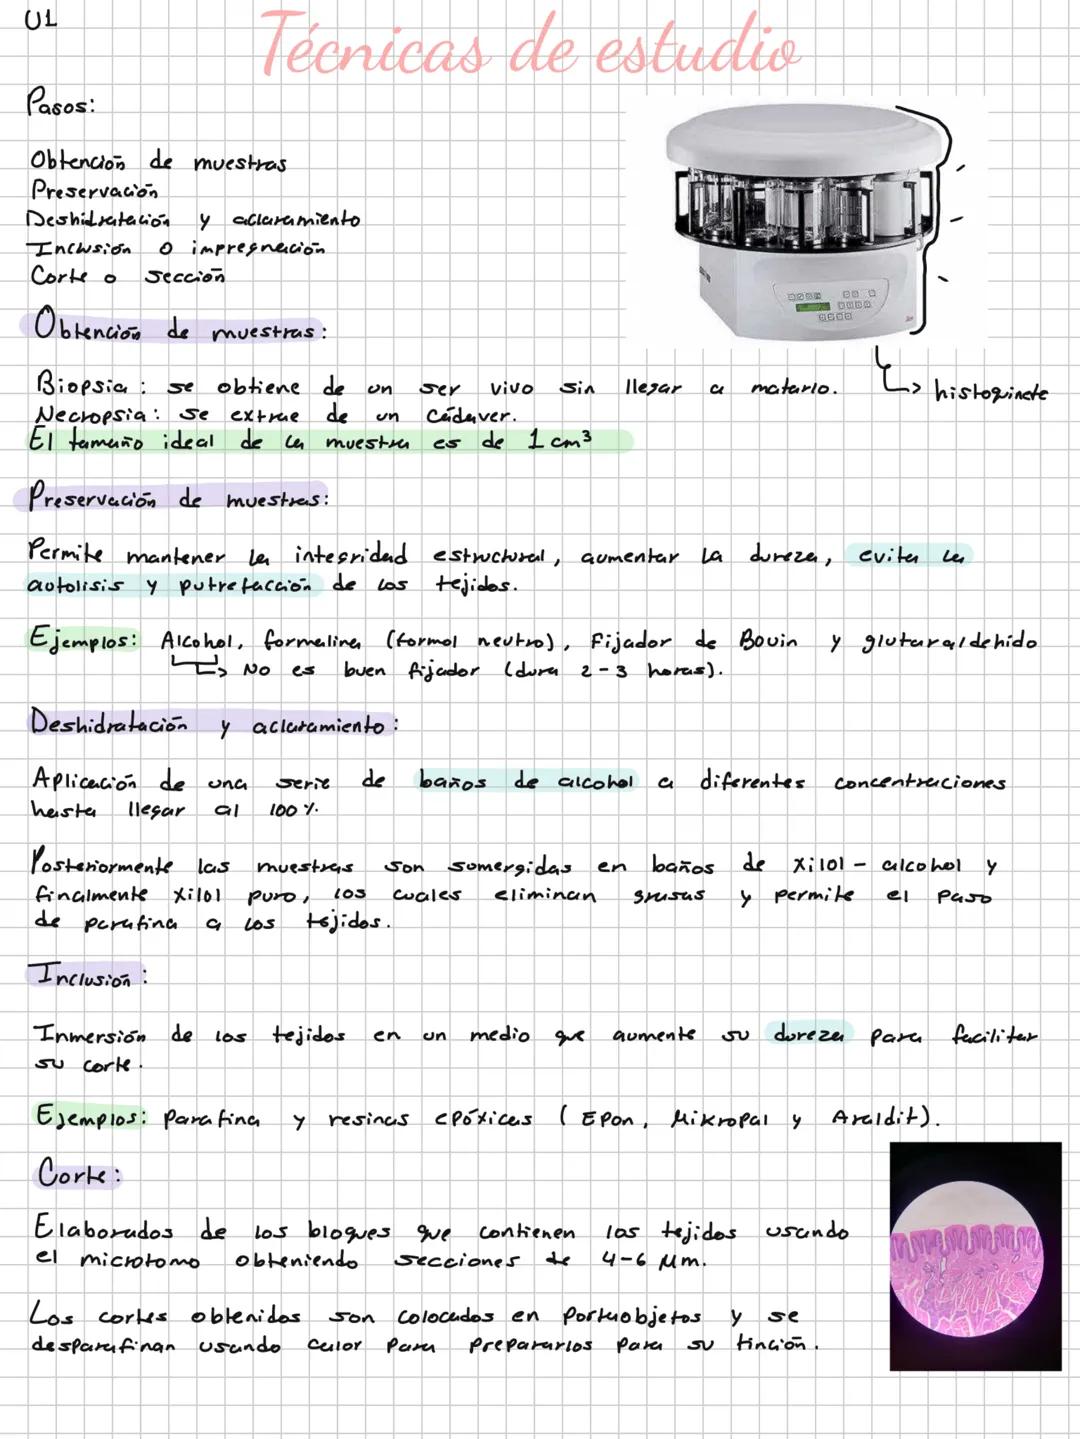 U1
Técnicas de estudio
Pasos:
Obtención de muestras
Preservación
Deshidratación y aclaramiento
Inclusión o impregnación
Corte o sección
Obtención de muestras:
Biopsia: se obtiene de un ser vivo sin llegar a matarlo.
histoquinete
Necropsia: se extrae de un cádaver.
El tamaño ideal de la muestra es de 1 cm³
Preservación de muestras:
Permite mantener la integridad estructural, aumentar la dureza, evita la
autolisis y putrefacción de los tejidos.
Ejemplos: Alcohol, formalina (formol neutro), Fijador de Bouin y glutaraldehido
No es buen fijador (dura 2-3 horas).
Deshidratación y aclaramiento:
Aplicación de una serie de baños de alcohol a diferentes concentraciones
hasta llegar al 100%.
Posteriormente las muestras son sumergidas en baños de xilol - alcohol y
finalmente xilol puro, los cuales eliminan grasas y permite el paso
de parafina a los tejidos.
Inclusión:
Inmersión de los tejidos en un medio que aumente su dureza para facilitar
su corte.
Ejemplos: Parafina y resinas epóxicas (Epon, Mikropal y Araldit).
Corte:
Elaborados de los bloques que contienen los tejidos usando
el microtomo obteniendo secciones de 4-6 μm.
Los cortes obtenidos son colocados en portaobjetos y se
desparafinan usando calor para prepararlos para su tinción.